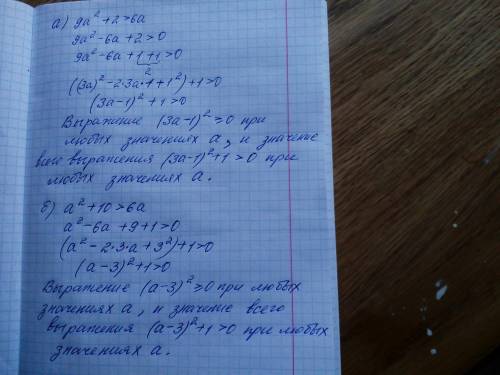 а) 9а² + 2 > 6а
9а² - 6а + 2 > 0
9а² - 6а + 1 + 1 > 0
2
((3а)² - 2·3а·1 + 1²) + 1 > 0
(3а - 1)² + 1 > 0
Выражение (3а - 1)² ≥ 0 при
любых значениях а, и значение
всего выражения (3а - 1)² + 1 > 0 при
любых значениях а.
б) а² + 10 > 6а
а² - 6а + 9 + 1 > 0
(а² - 2·3·а + 3²) + 1 > 0
(а - 3)² + 1 > 0
Выражение (а - 3)² ≥ 0 при любых
значениях а, и значение всего
выражения (а - 3)² + 1 > 0 при любых
значениях а.